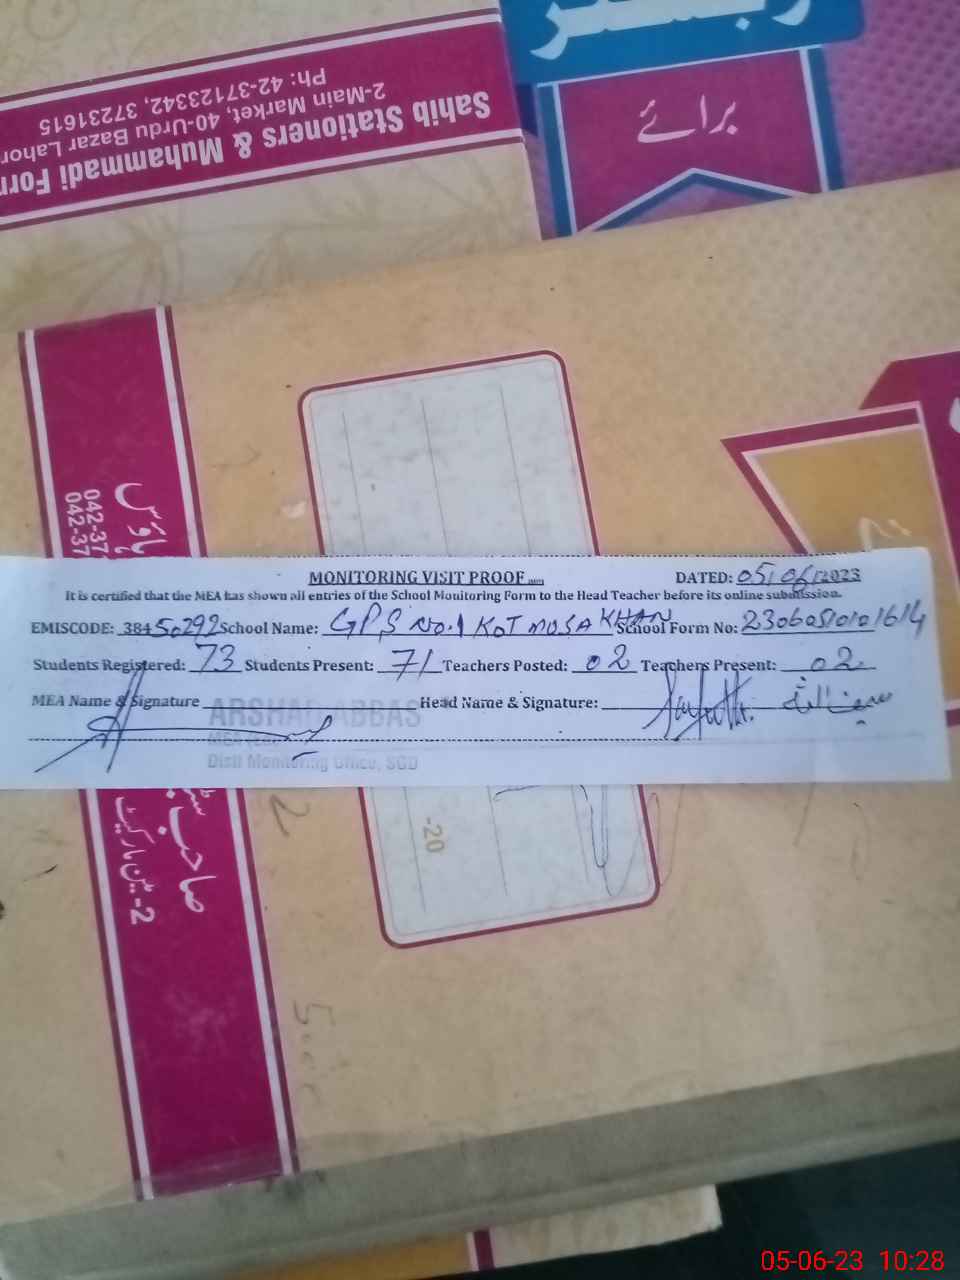 رجسٹر
برائے
Sahib Stationers & Muhammadi Form
2-Main Market, 40-Urdu Bazar Lahor
Ph: 42-37123342, 37231615
ہاؤس
042-37
042-37
MONITORING VISIT PROOF
DATED: 05/06/2023
It is certified that the MEA has shown all entries of the School Monitoring Form to the Head Teacher before its online submission.
EMISCODE: 38450292 School Name: GPS No.1 KOT MUSA KHAN School Form No: 23060510101614
Students Registered: 73 Students Present: 71 Teachers Posted: 02 Teachers Present: 02
MEA Name & Signature ARSHAD ABBAS Head Name & Signature: سیف اللہ
Distt Monitoring Office, SGD
صاحب
2-مین مارکیٹ
-20
05-06-23 10:28